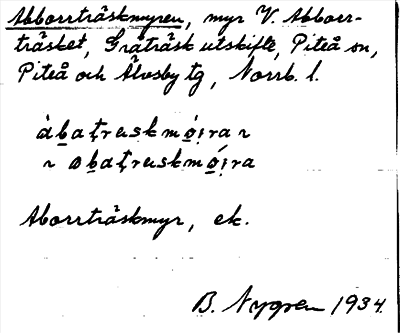 Abborrträskmyren, myr V. Abborr-
träsket, Gråträsk utskifte, Piteå sn,
Piteå och Älvsby tg, Norrb. l.
àb̲at̩ruskmó̲i̩ra ~
~ ɷb̲at̩ruskmó̲i̩ra
Aborrträskmyr, ek.
B. Nygren 1934.